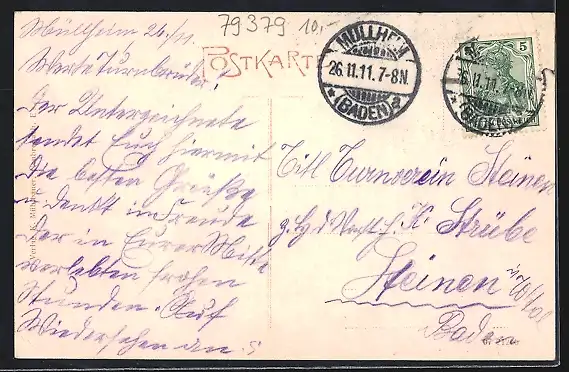 79379 10,-
Müllheim 26./11.
POSTKARTE
Werte Turnbrüder!
Der Unterzeichnete
sendet Euch hiermit
die besten Grüße
u. denkt in Freude
der in Eurer Mitte
verlebten frohen
Stunden. Auf
Wiedersehen am 5
MÜLLHEIM
26.11.11.7-8N
(BADEN)
5
26.11.11.7-8N
(BADEN)
Titl Turnverein Steinen
z. Hd Vorst. H. K. Strübe
Steinen
Baden